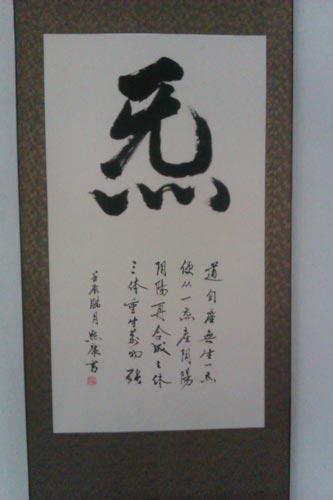 炁
道自虚無生一炁
便从一炁産阴陽
阴陽再合成三体
三体重生萬物張
壬辰臘月書